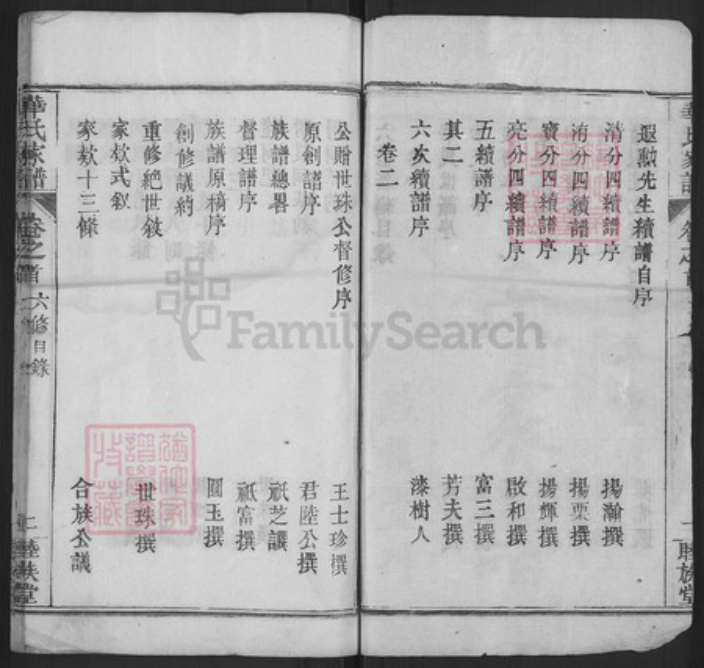 遐勲先生續譜自序
清分四續譜序 揚瀚撰
洧分四續譜序 揚栗撰
寶分四續譜序 揚輝撰
亮分四續譜序 啟和撰
五續譜序 富三撰
其二 芳夫撰
六次續譜序 漆樹人
卷二
公贈世珠公督修序 王士珍撰
原創譜序 君陸公撰
族譜總畧 祇芝讓
督理譜序 祇富撰
族譜原稿序 圓玉撰
創修議約
重修絶世敘 世珠撰
家欸式敘
家欸十三條 合族公議
華氏家譜 卷之首 六修目錄 二 睦族堂
睦族堂
FamilySearch